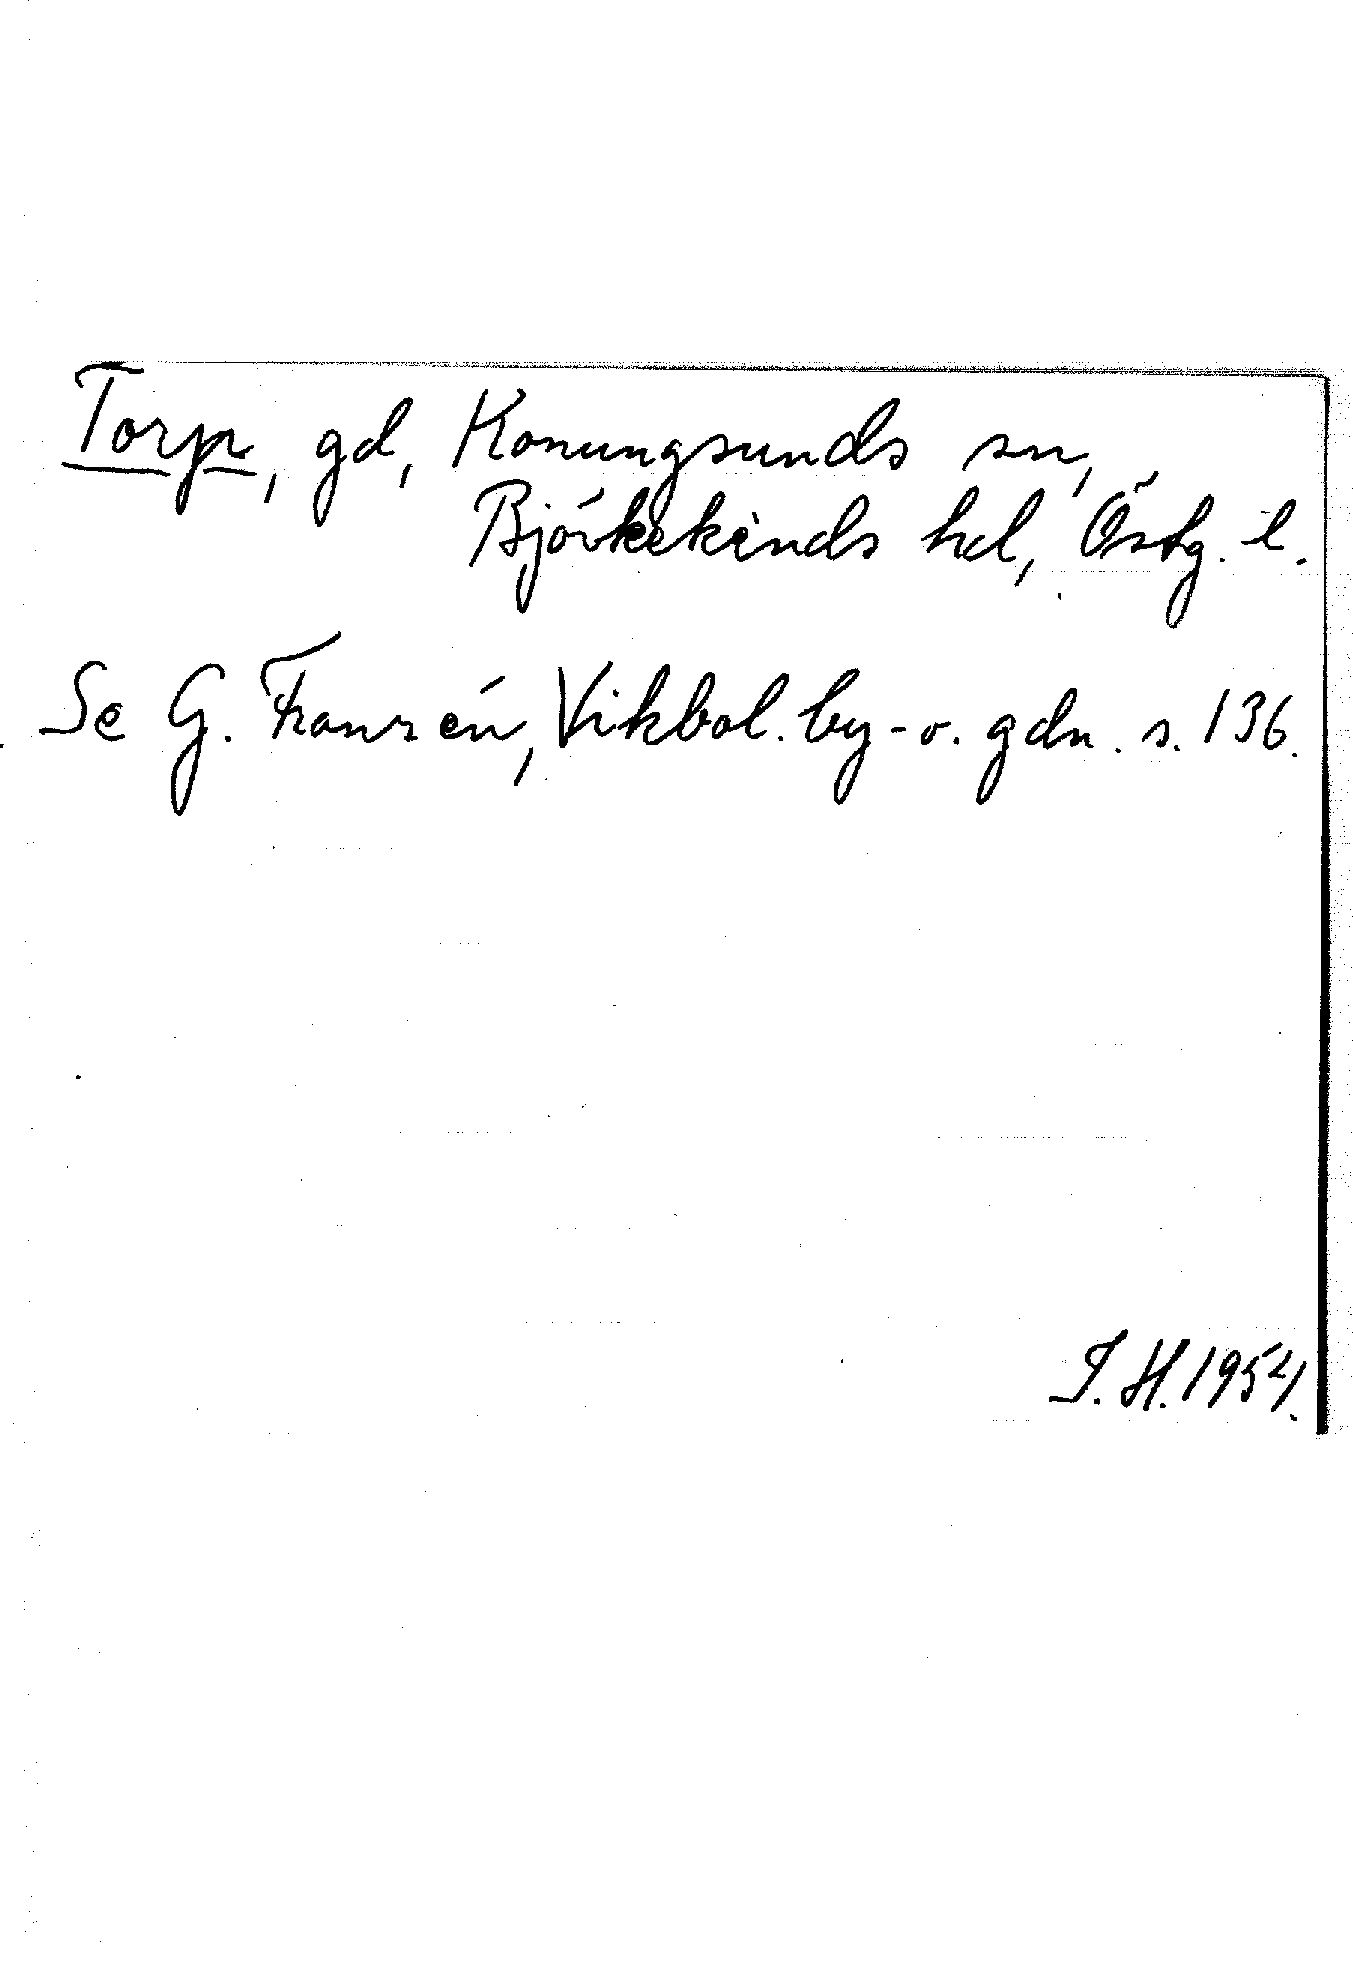 Torp, gd, Konungsunds sn,
Björkekinds hd, Östg. l.
Se G. Franzén, Vikbol. by- o. gdn. s. 136.
I. H. 1954.